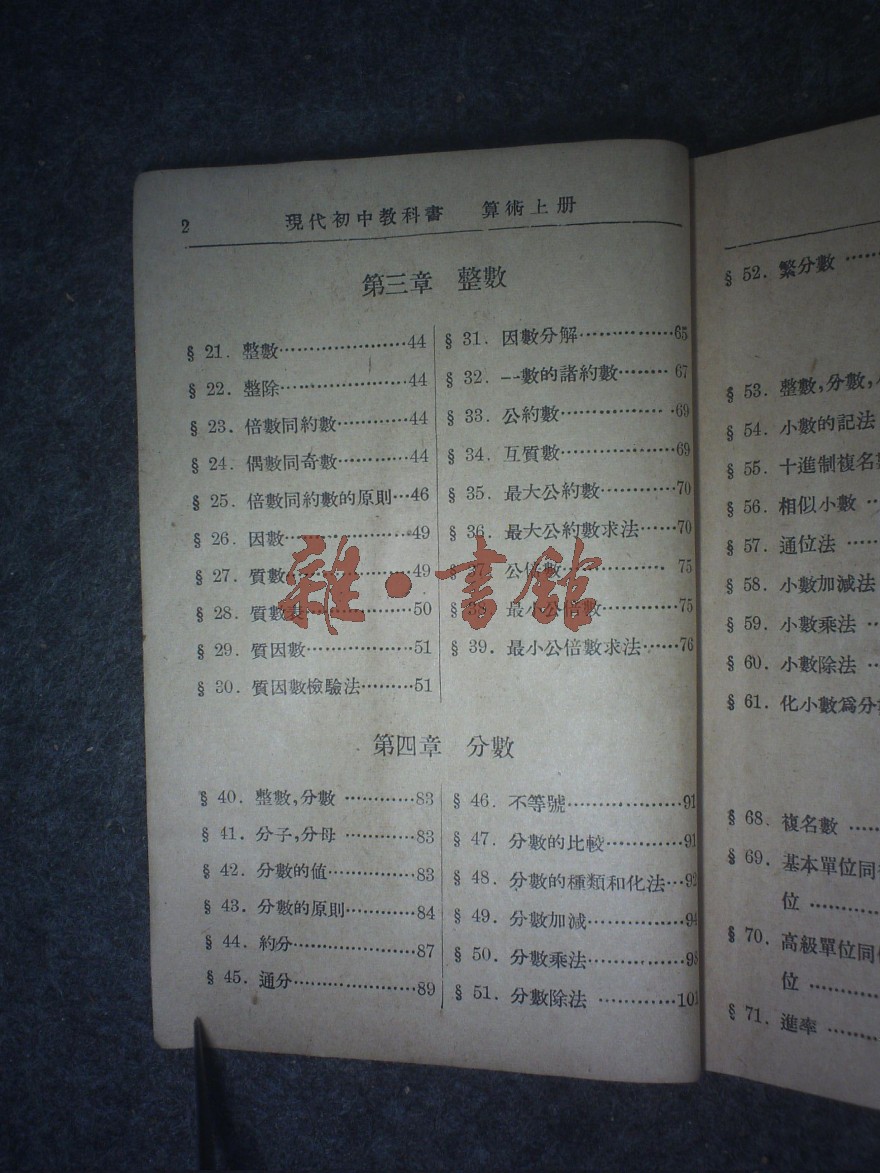 2 現代初中教科書 算術上册
第三章 整數
§ 21. 整數……44
§ 22. 整除……44
§ 23. 倍數同約數……44
§ 24. 偶數同奇數……44
§ 25. 倍數同約數的原則…46
§ 26. 因數……49
§ 27. 質數……49
§ 28. 質數表……50
§ 29. 質因數……51
§ 30. 質因數檢驗法……51
§ 31. 因數分解……65
§ 32. 一數的諸約數……67
§ 33. 公約數……69
§ 34. 互質數……69
§ 35. 最大公約數……70
§ 36. 最大公約數求法……70
§ 37. 公倍數……75
§ 38. 最小公倍數……75
§ 39. 最小公倍數求法……76
雜·書館
第四章 分數
§ 40. 整數,分數……83
§ 41. 分子,分母……83
§ 42. 分數的值……83
§ 43. 分數的原則……84
§ 44. 約分……87
§ 45. 通分……89
§ 46. 不等號……91
§ 47. 分數的比較……91
§ 48. 分數的種類和化法…92
§ 49. 分數加減……94
§ 50. 分數乘法……98
§ 51. 分數除法……101
§ 52. 繁分數……
§ 53. 整數,分數,
§ 54. 小數的記法
§ 55. 十進制複名
§ 56. 相似小數…
§ 57. 通位法……
§ 58. 小數加減法
§ 59. 小數乘法…
§ 60. 小數除法…
§ 61. 化小數爲分
§ 68. 複名數……
§ 69. 基本單位同
位……
§ 70. 高級單位同
位……
§ 71. 進率……